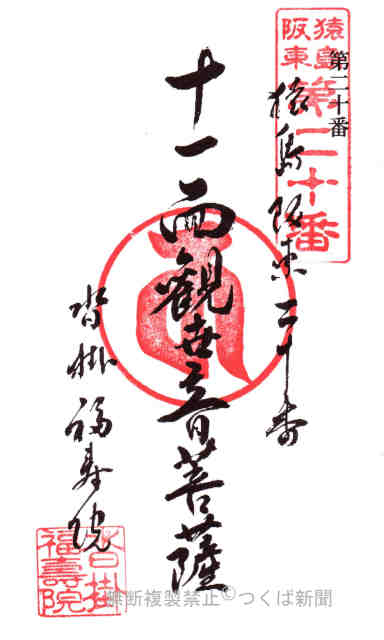 猿島阪東
第二十番
第二十番
猿島阪東二十番
十一面觀世音菩薩
沓掛福寿院
沓掛
福壽院
無断複製禁止©つくば新聞